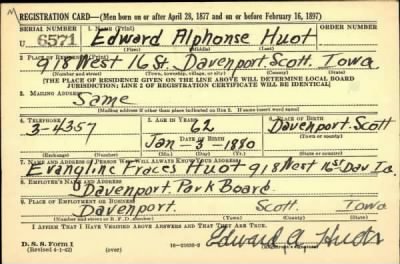 REGISTRATION CARD—(Men born on or after April 28, 1877 and on or before February 16, 1897)
SERIAL NUMBER 1. NAME (Print)
U 6571 Edward Alphonse Huot
(First) (Middle) (Last)
2. PLACE OF RESIDENCE (Print)
918 West 16 St. Davenport Scott Iowa
(Number and street) (Town, township, village, or city) (County) (State)
[THE PLACE OF RESIDENCE GIVEN ON THE LINE ABOVE WILL DETERMINE LOCAL BOARD
JURISDICTION; LINE 2 OF REGISTRATION CERTIFICATE WILL BE IDENTICAL]
3. MAILING ADDRESS
Same
[Mailing address if other than place indicated on line 2. If same insert word same]
4. TELEPHONE 5. AGE IN YEARS 6. PLACE OF BIRTH
3-4357 62 Davenport-Scott
DATE OF BIRTH (Town or county)
Jan-3-1880
(Exchange) (Number) (Mo.) (Day) (Yr.) (State or country)
7. NAME AND ADDRESS OF PERSON WHO WILL ALWAYS KNOW YOUR ADDRESS
Evangline Fraces Huot 918 West 16 St Dav Ia.
8. EMPLOYER'S NAME AND ADDRESS
Davenport Park Board
9. PLACE OF EMPLOYMENT OR BUSINESS
Davenport. Scott Iowa
(Number and street or R. F. D. number) (Town) (County) (State)
I AFFIRM THAT I HAVE VERIFIED ABOVE ANSWERS AND THAT THEY ARE TRUE.
D. S. S. Form 1
(Revised 4-1-42) (over) Edward A Huot